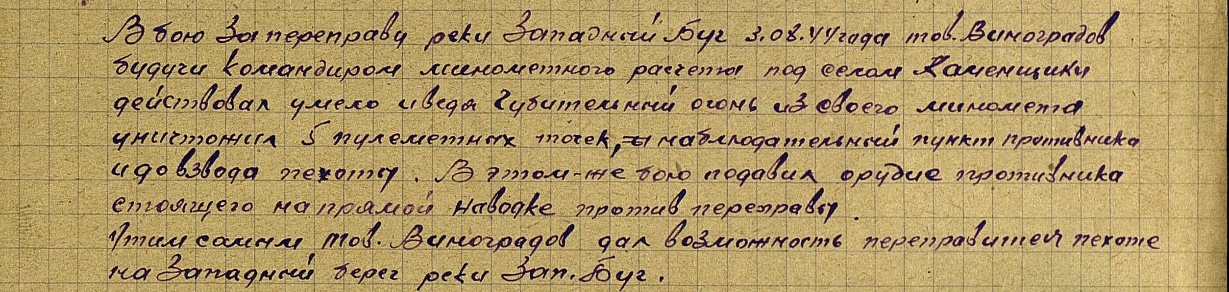 В бою за переправу реки Западный Буг 3.08.44 года тов. Виноградов
будучи командиром минометного расчета под селом Каменщики
действовал умело и ведя губительный огонь из своего миномета
уничтожил 5 пулеметных точек, наблюдательный пункт противника
и до взвода пехоты. В этом-же бою подавил орудие противника
стоящего на прямой наводке против переправы.
Этим самым тов. Виноградов дал возможность переправится пехоте
на Западный берег реки Зап. Буг.